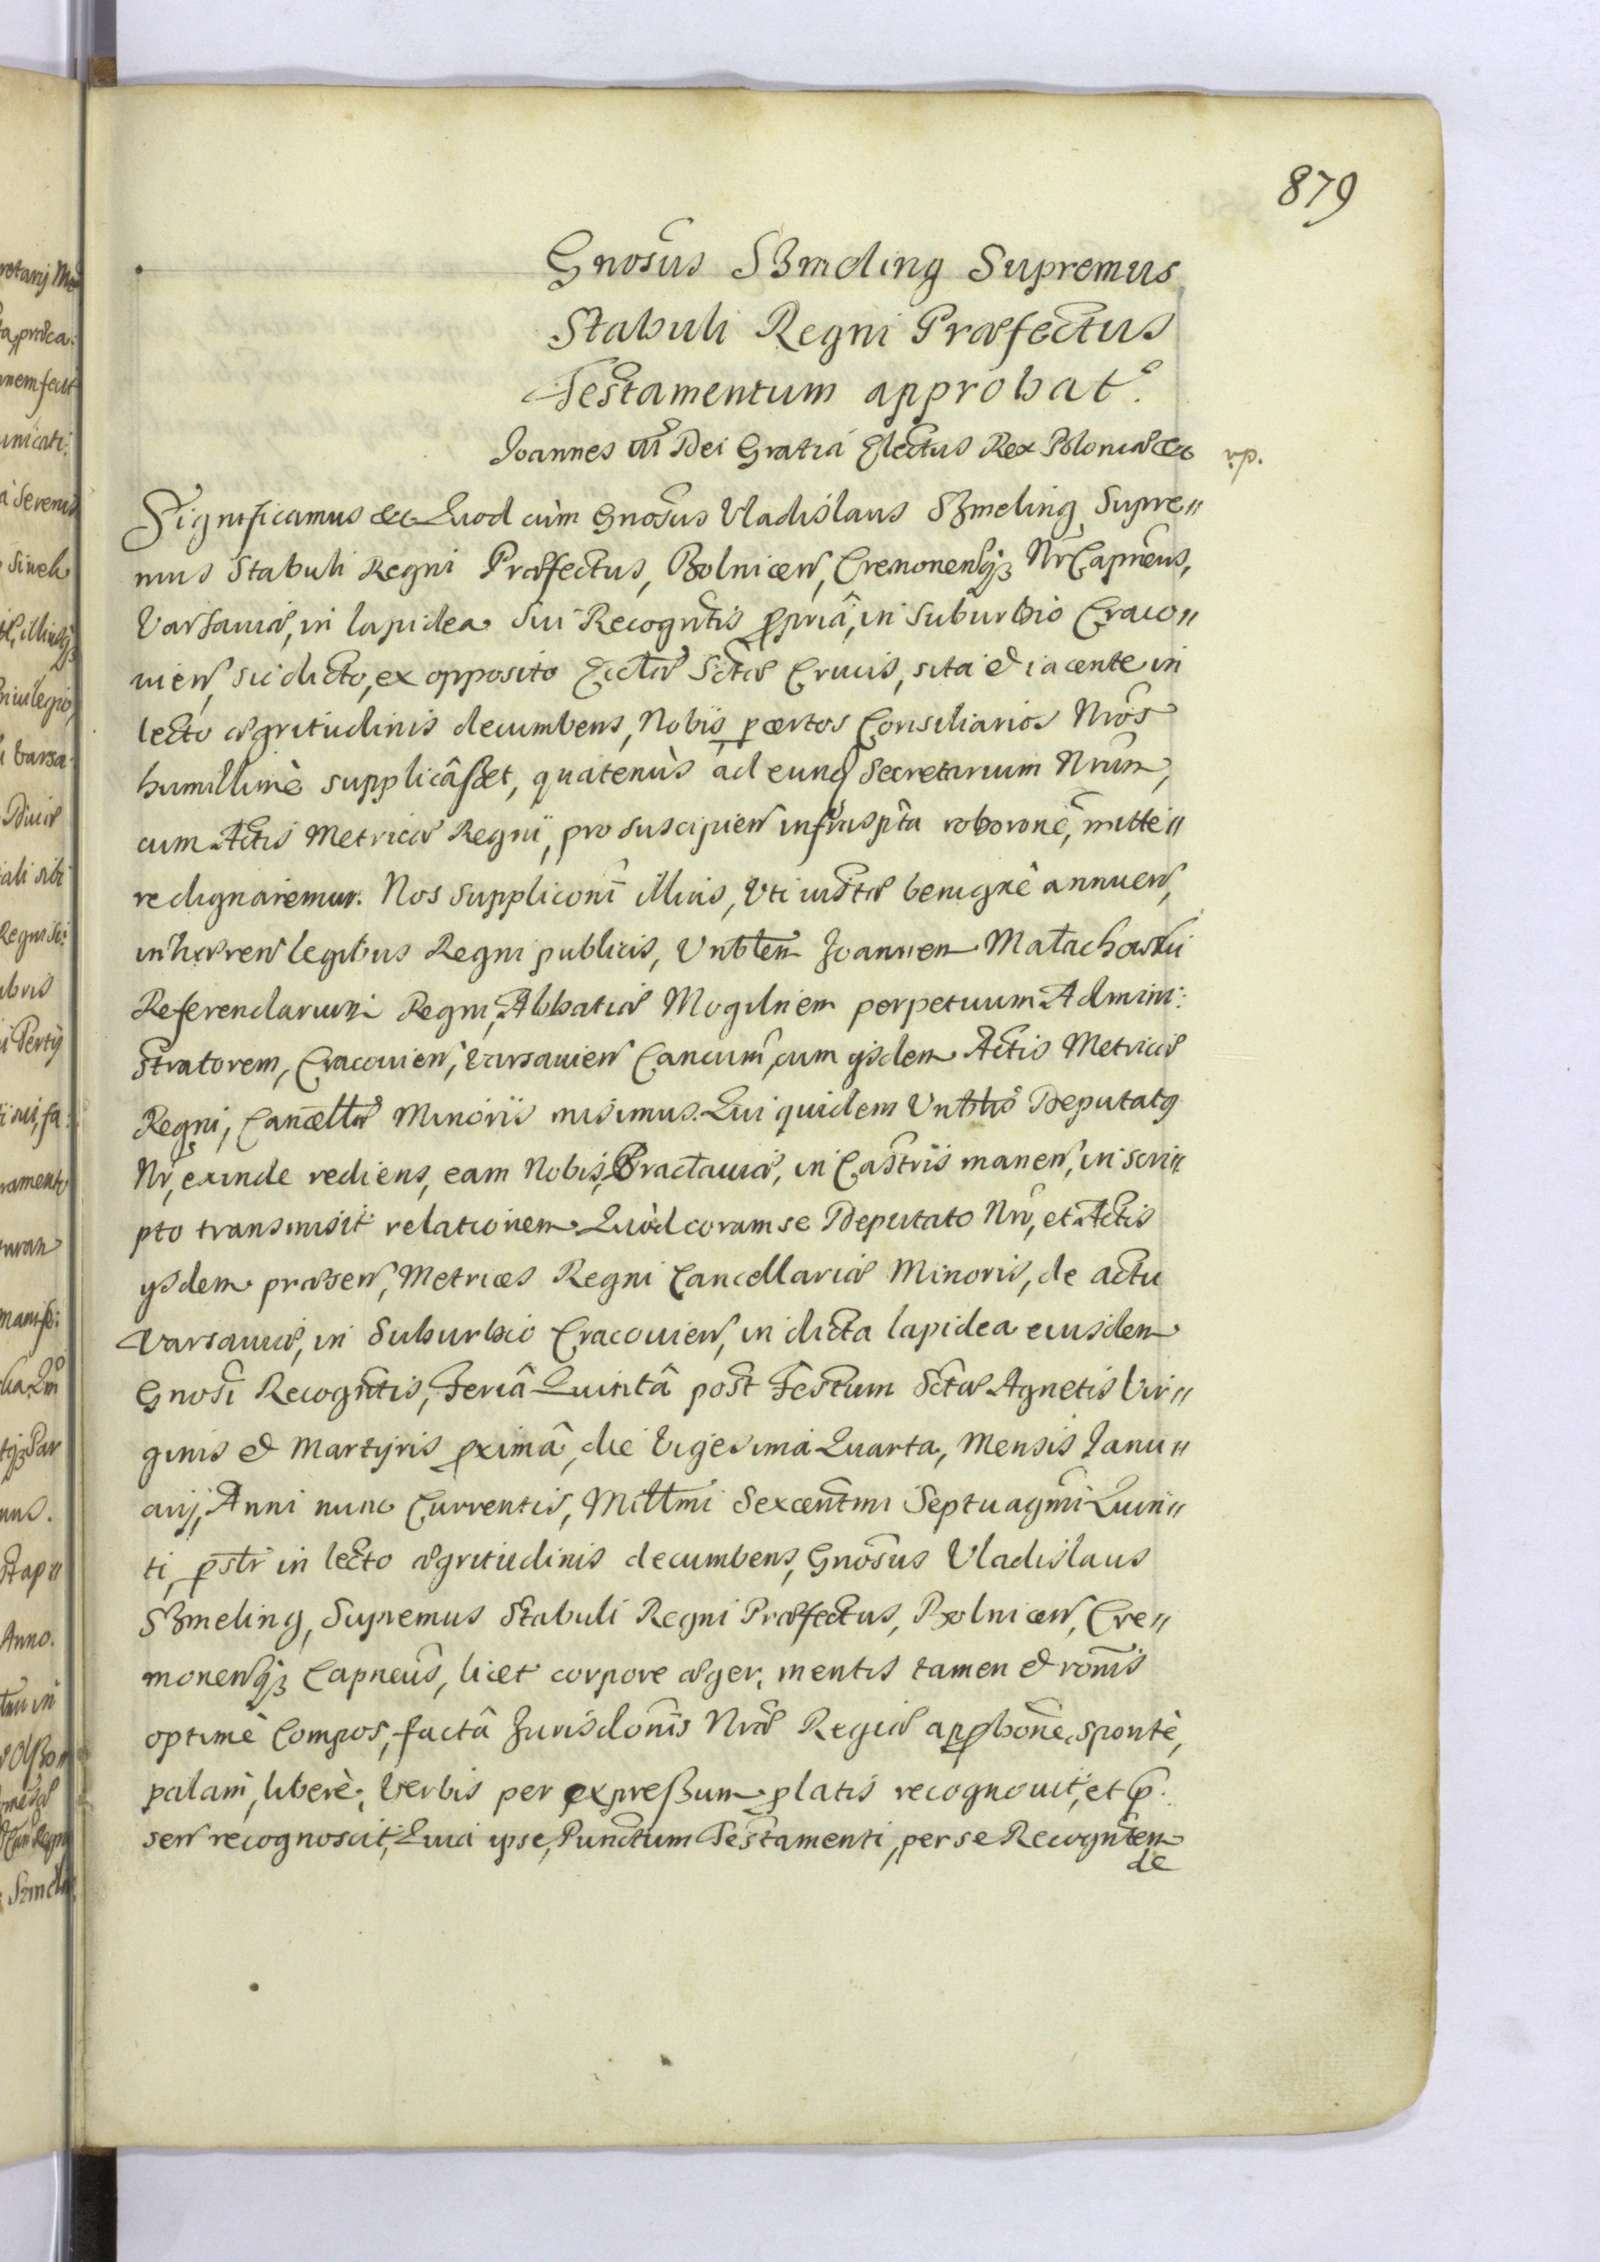 879
Gnosus SZmeling Supremus
Stabuli Regni Præfectus
Testamentum approbat.
Joannes III Dei Gratiâ Electus Rex Poloniæ etc
Significamus etc Quod cùm Gnosus Vladislaus SZmeling Supre„
mus Stabuli Regni Præfectus, Bolnicen, Cremonensqz Nr Capneus,
Varsaviæ, in lapidea sui Recogntis ppriâ, in suburbio Craco„
vien, sic dicto, ex opposito Ecclæ Sctæ Crucis, sita et iacente in
lecto ægritudinis decumbens, Nobis p certos Consiliarios Nros
humillimè supplicâsset, quatenùs ad eund Secretarium Nrum,
cum Actis Metricæ Regni, pro suscipien infraspta roborone, mitte„
re dignaremur. Nos suppliconi illius, Vti iustæ benignè annuen,
inhæren legibus Regni publicis, Vnblem Joannem Małachowski
Referendarium Regni, Abbatiæ Mogilnem perpetuum Admini:
stratorem, Cracovien, Varsavien Cancum, cum ysdem Actis Metricæ
Regni, Cancellæ Minoris misimus. Qui quidem Vnblis Deputatg
Nr, exinde rediens, eam Nobis, Bracłaviæ, in Castris manen, in scri„
pto transmisit relationem. Quòd coram se Deputato Nro, et Actis
ysdem præsen, Metrices Regni Cancellariæ Minoris, de actu
Varsaviæ, in Suburbio Cracovien, in dicta lapidea eiusdem
Gnosi Recogntis, Feriâ Quintâ post Festum Sctæ Agnetis Vir„
ginis et Martyris pximâ, die Vigesima Quarta, Mensis Janu„
arij, Anni nunc Currentis, Millmi Sexcentmi Septuagmi Quin„
ti, pstr in lecto ægritudinis decumbens, Gnosus Vladislaus
SZmeling, Supremus Stabuli Regni Præfectus, Bolnicen, Cre„
monensqz Capneus, licet corpore æger, mentis tamen et ronis
optimè Compos, factâ Jurisdonis Nræ Regiæ apphone, spontè,
palam, liberè, Verbis per expreßum platis recognovit, et p.
sen recognoscit, Quia ipse, Punctum Testamenti, per se Recogntem
de